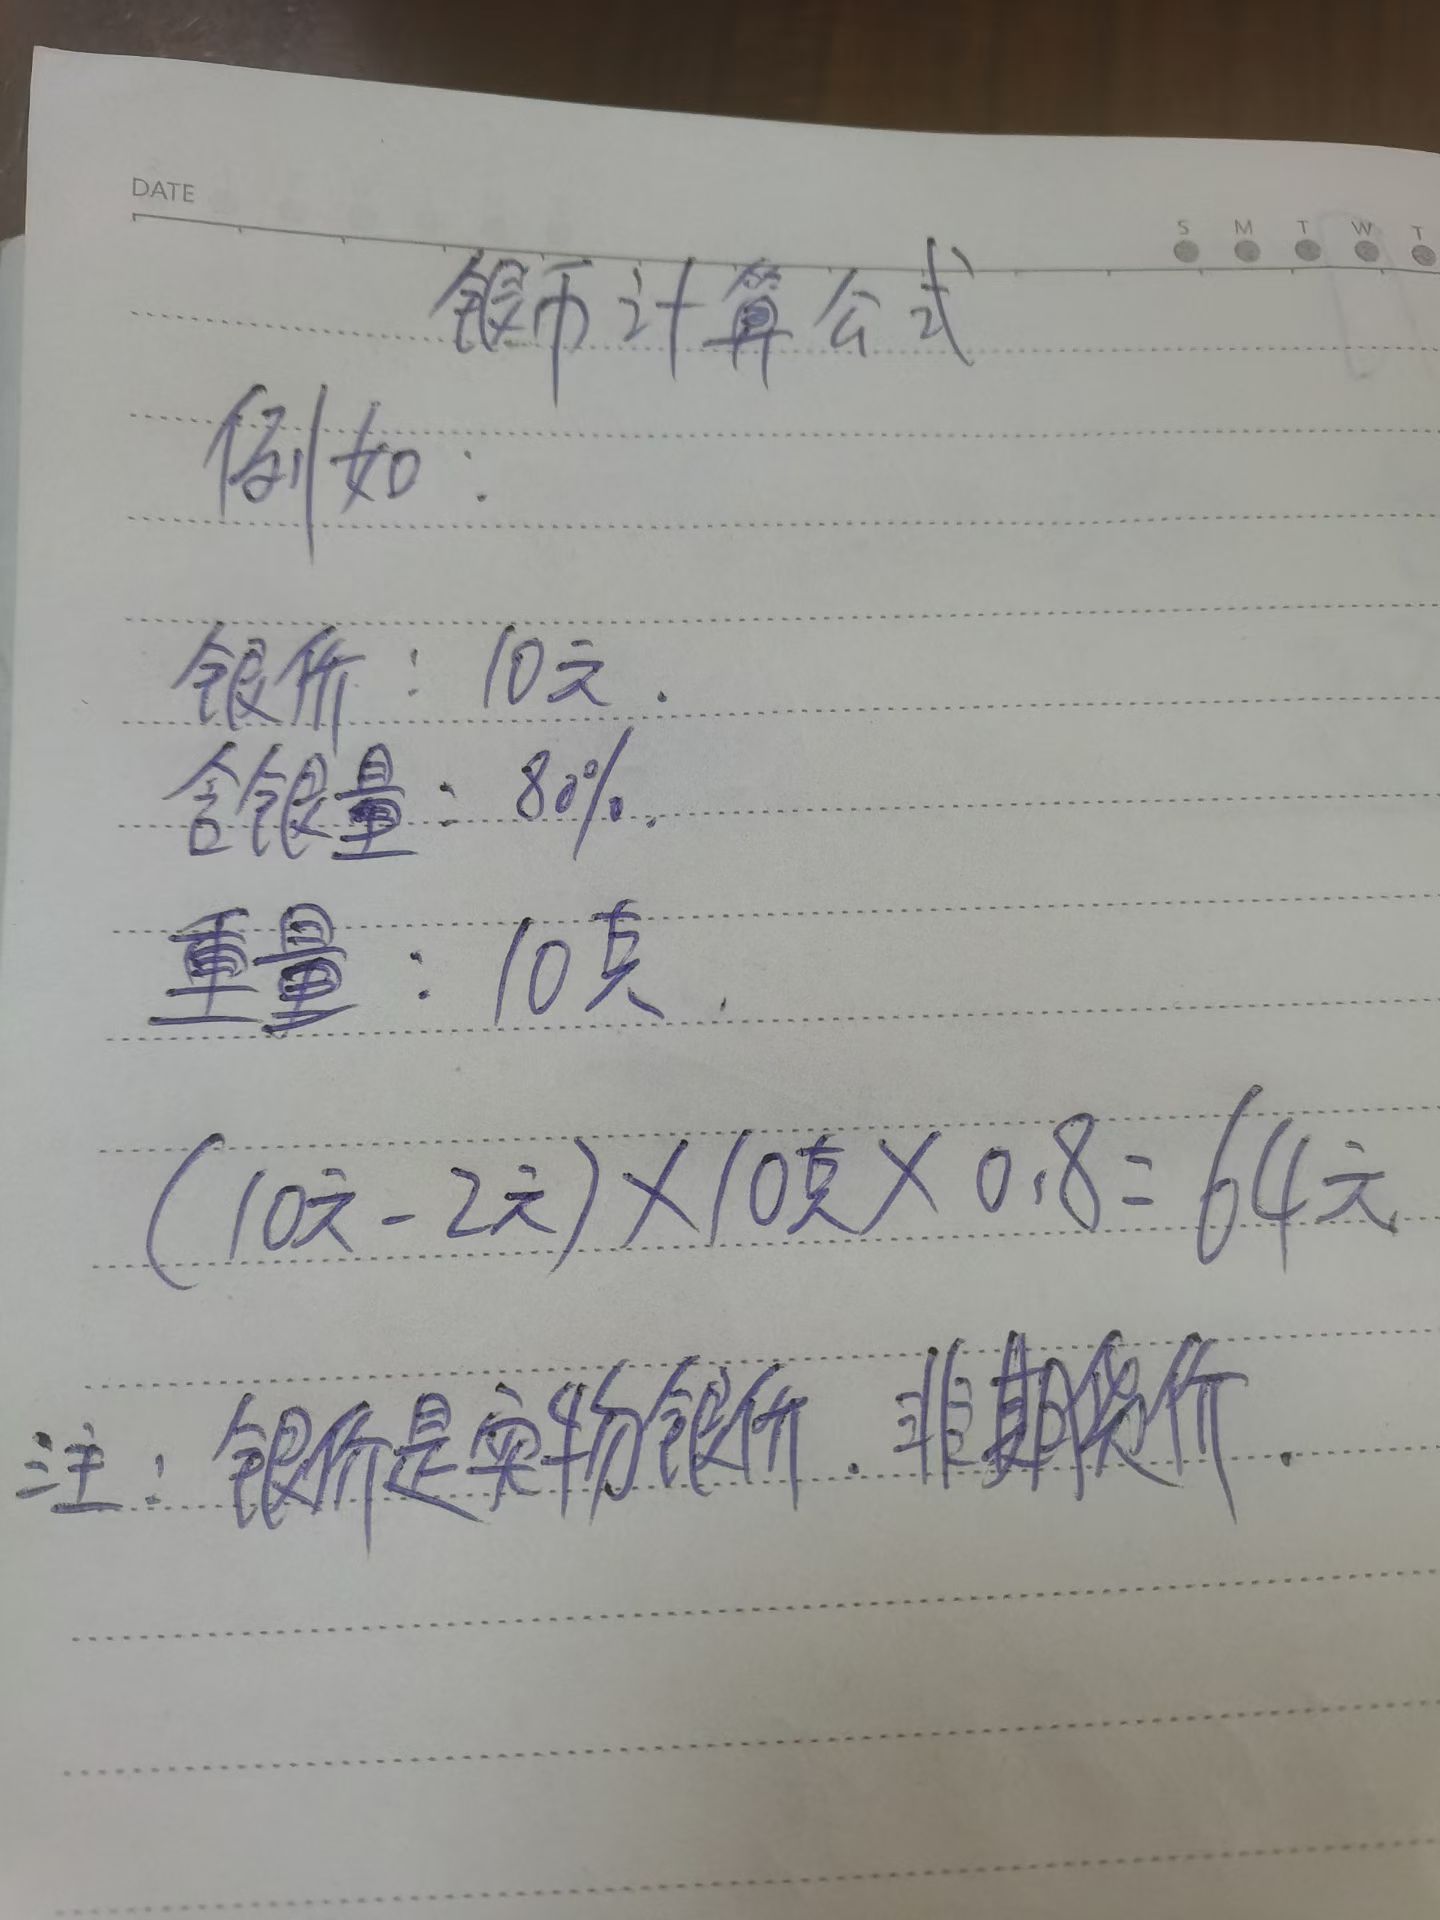 DATE
S M T W T
银币计算公式
例如：
银价：10元.
含银量：80%.
重量：10克.
(10元-2元)×10克×0.8=64元
注：银价是实物银价.非期货价.